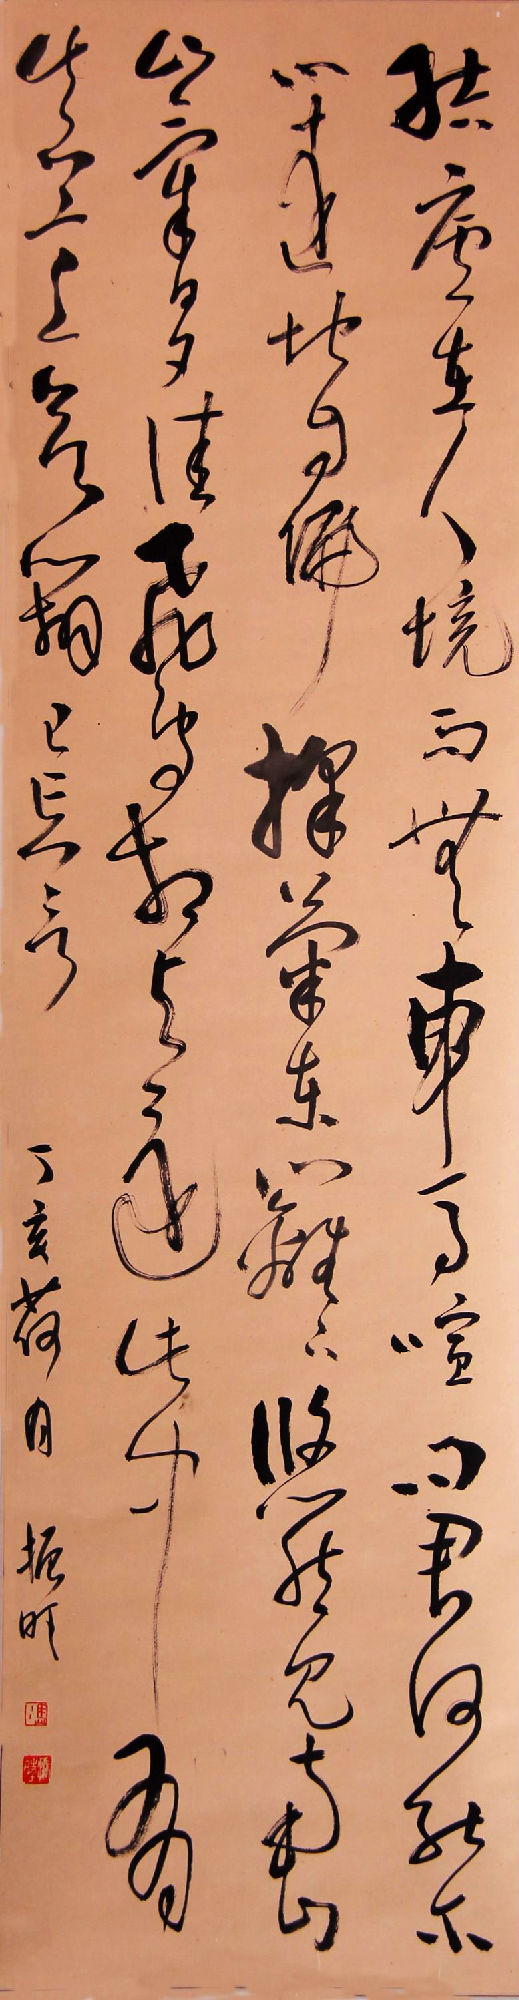 結廬在人境而無車馬喧問君何能尔
心遠地自偏採菊東籬下悠然見南山
山氣日夕佳飛鳥相與還此中有
真意欲辨已忘言 丁亥荷月 振